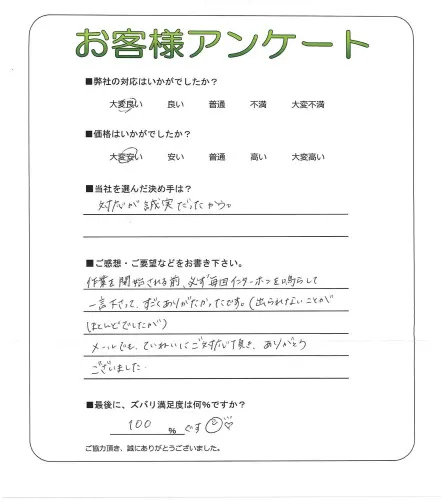 お客様アンケート
■弊社の対応はいかがでしたか?
大変良い 良い 普通 不満 大変不満
■価格はいかがでしたか?
大変安い 安い 普通 高い 大変高い
■当社を選んだ決め手は?
対応が誠実だったから。
■ご感想・ご要望などをお書き下さい。
作業を開始される前、必ず毎回インターホンを鳴らして
一言下さって、すごくありがたかったです。(出られないことが
ほとんどでしたが)
メールでも、ていねいにご対応頂き、ありがとう
ございました。
■最後に、ズバリ満足度は何%ですか?
100 %です
ご協力頂き、誠にありがとうございました。